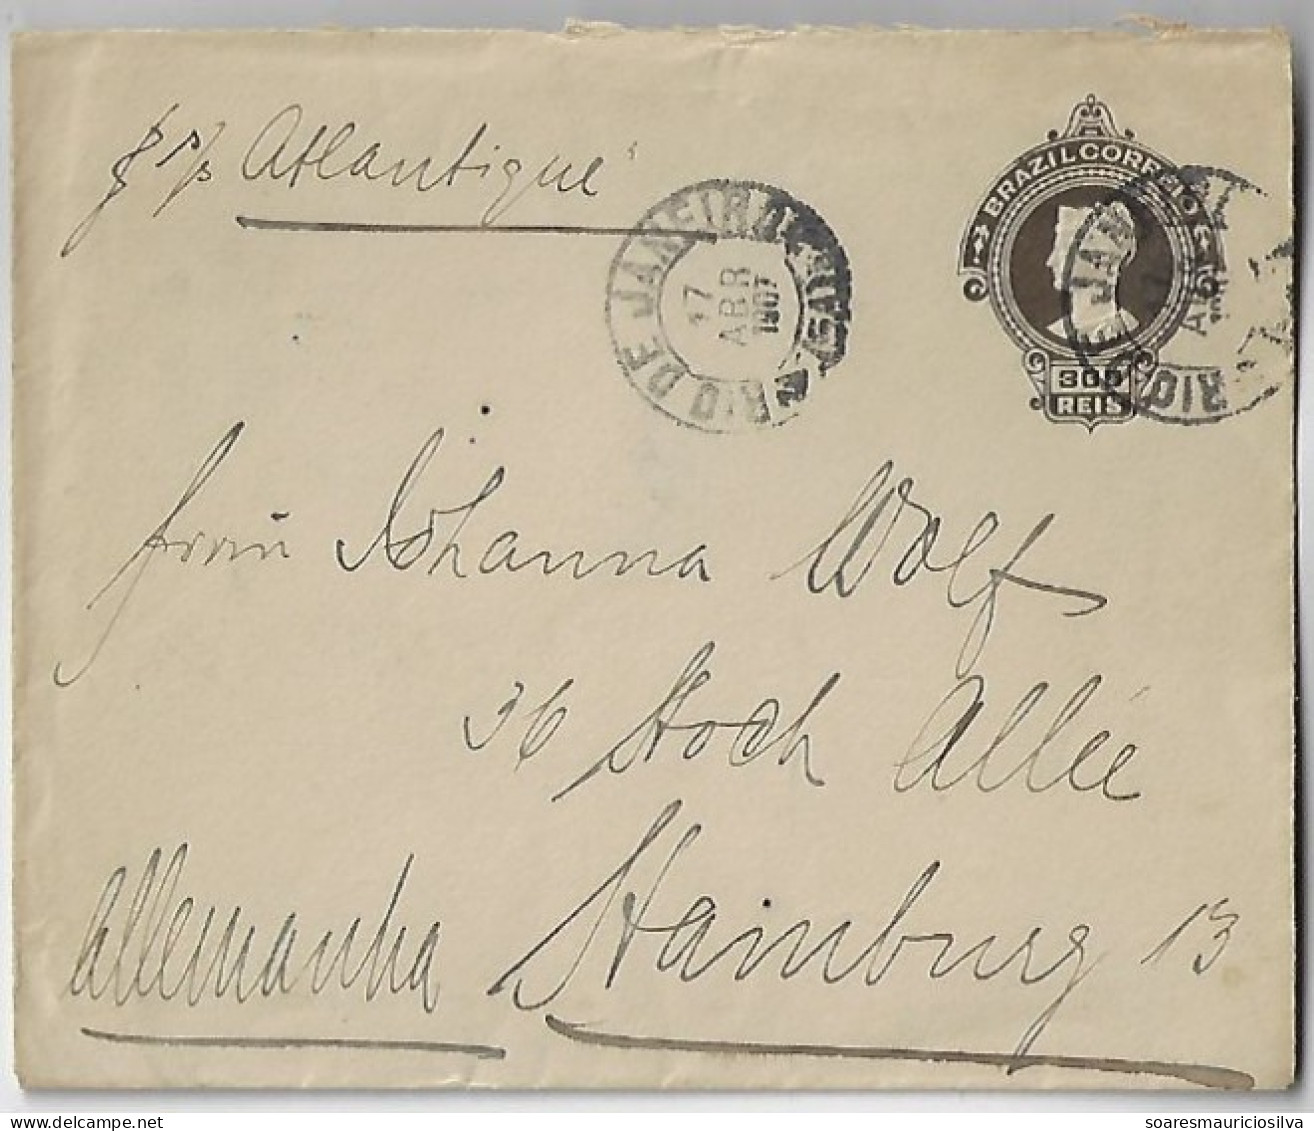 p s/s Atlantique
BRAZIL CORREIO
300
REIS
RIO DE JANEIRO
17
ABR
1907
JANEI
RIO
Frau Johanna Wolf
36 Hoch Allée
Hamburg 13
Allemanha
delcampe.net
soaresmauriciosilva